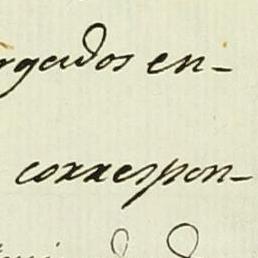 rgados en-
correspon-